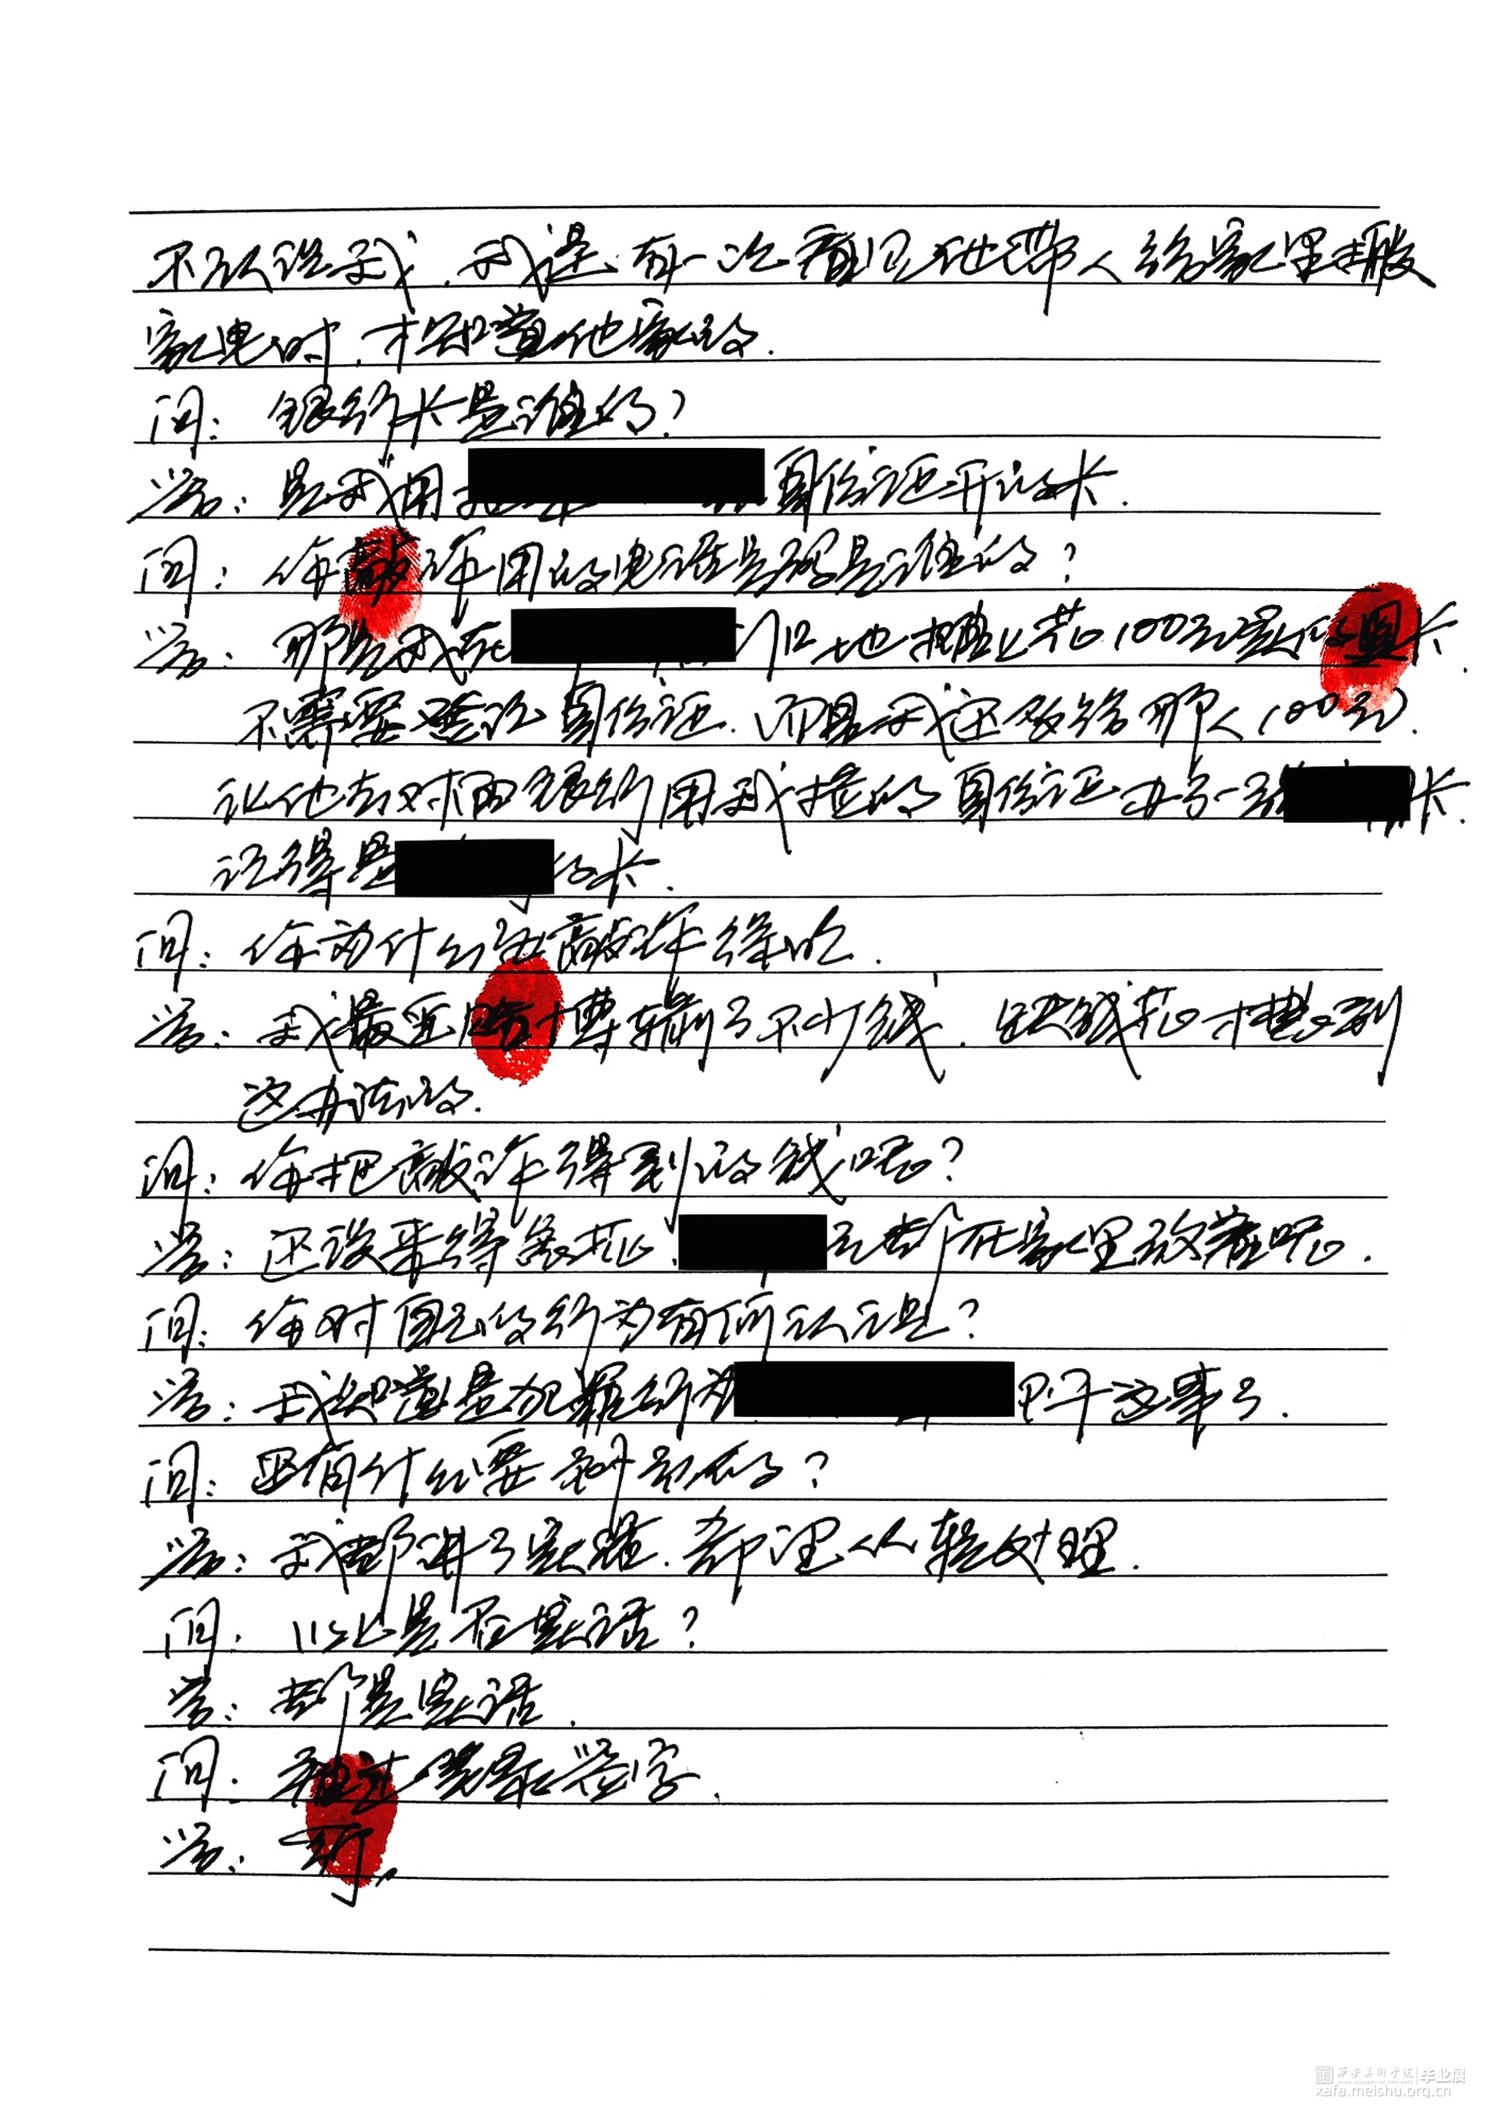 不认识我，我是有一次看见他带人给家里搬
家电时，才知道他家的.
问：银行卡是谁的？
答：是我用 身份证开的卡.
问：你敲诈用的电话号码是谁的？
答：那是我在 门口地摊上花100元买的黑卡.
不需要登记身份证.而且我还多给那人100元.
让他去对面银行用我捡的身份证办了一张 卡.
记得是 的卡.
问：你为什么要敲诈 .
答：我最近赌博输了不少钱.缺钱花才想到
这办法的.
问：你把敲诈得到的钱呢？
答：还没来得急花. 元都在家里放着呢.
问：你对自己的行为有何认识？
答：我知道是犯罪行为 干这事了.
问：还有什么要补充的？
答：我都讲了实话. 从轻处理.
问：以上是否实话？
答：都是实话.
问： 签字.
答：行.
西安美术学院 毕业展
xafa.meishu.org.cn